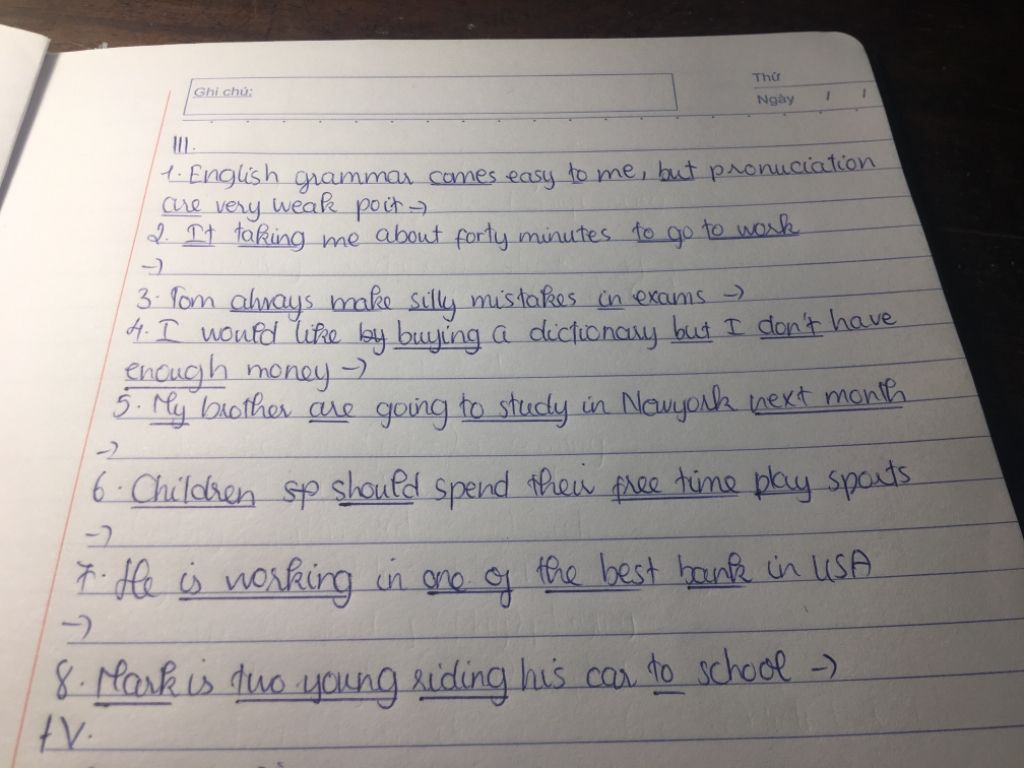 Ghi chú:
Thứ
Ngày / /
III.
1. English grammar comes easy to me, but pronuciation
are very weak poit →
2. It taking me about forty minutes to go to work
→
3. Tom always make silly mistakes in exams →
4. I would like by buying a dictionary but I don't have
enough money →
5. My brother are going to study in Newyork next month
→
6. Children sp should spend their free time play sports
→
7. He is working in one of the best bank in USA
→
8. Mark is two young riding his car to school →
IV.